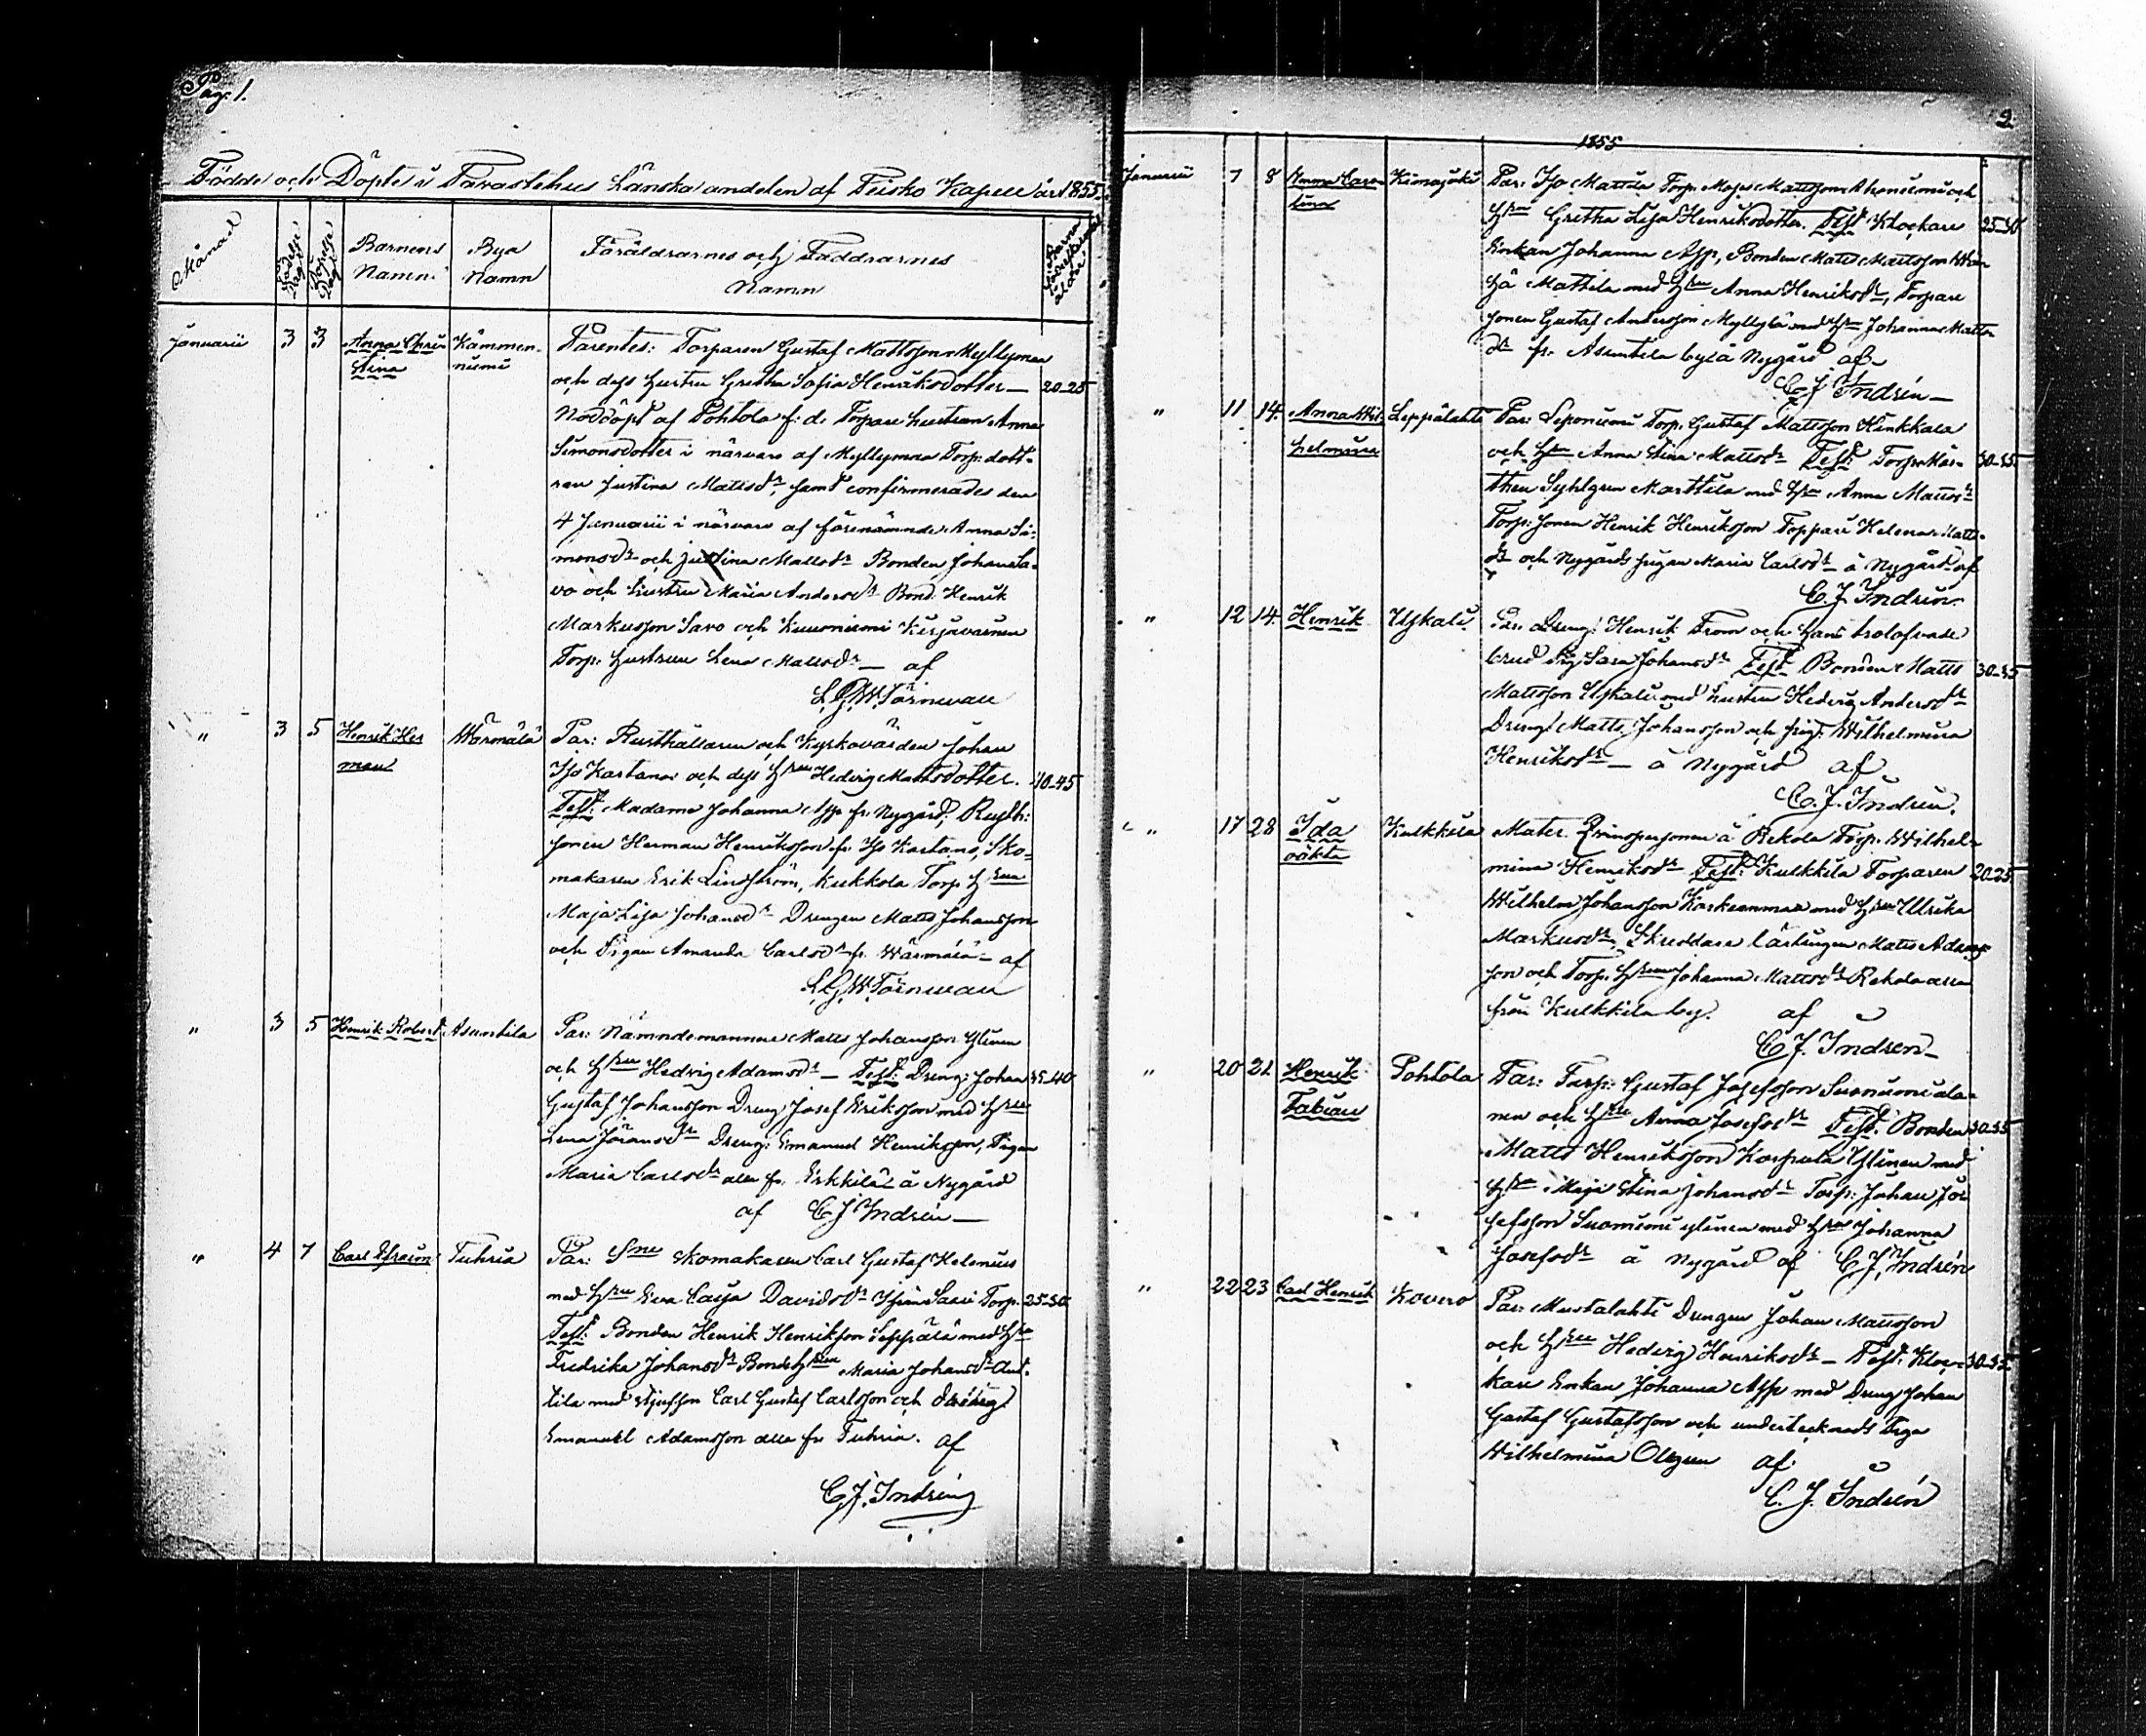 Page 1.
Födde och Döpte i Tavastehus Länska andelen af Teisko Kapell år 1855.
Månad
Födelse Dag
Döpelse Dag
Barnens Namn
Bya Namn
Föräldrarnes och Faddrarnes Namn
Januarii 3 3 Anna Chri- Kämmen- Parentes: Torparen Gustaf Mattsson Myllymaa
stina niemi och dess hustru Gretha Sofia Henriksdotter — 20-25
Nöddöpt af Pohtola f: d. Torpare hustrun Anna
Simonsdotter i närvaro af Myllymaa Torp: dott-
ren Justina Mattsdr, samt confirmerades den
4 Januarii i närvaro af förenämnde Anna Si-
monsdr och Justina Mattsdr Bonden Johan Sa-
vo och hustru Maria Andersdr Bond. Henrik
Markusson Savo och Kuusniemi
Torp. hustrun Lena Mattsdr — af
L.G.W. Törnevall
" 3 5 Henrik Her Wärmälä Par: Rusthållaren och Kyrkovärden Johan
man Iso Kartano och dess Hru Hedvig Mattsdotter. 40-45
Test: Madame Johanna Asp fr. Nygård, Rusth:
sonen Herman Henriksson fr. Iso Kartano, Sko-
makaren Erik Lindström, Kukkola Torp. Hru
Maja Lisa Johansdr Drengen Matts Johansson
och Pigan Amanda Carlsdr fr. Wärmälä — af
L.G.W. Törnevall
" 3 5 Henrik Robert Asuntila Par: Nämndemannen Matts Johansson Ylinen
och Hru Hedvig Adamsdr — Test: Dreng: Johan 35-40
Gustaf Johansson Dreng Josef Eriksson med Hru
Lena Göransdr Dreng: Emanuel Henriksson, Pigan
Maria Carlsdr alla fr. Erkkilä å Nygård
af C J Indrén —
" 4 7 Carl Efraim Tuhria Par: Snu Skomakaren Carl Gustaf Helenius
med Hru Eva Caisa Davidsdr Saari Torp. 25-30
Test: Bonden Henrik Henriksson Seppälä med Hru
Fredrika Johansdr Bonde Hru Maria Johansdr Ant-
tila med Styfson Carl Gustaf Carlsson och Dreng
Emanuel Adamsson alla fr Tuhria. af
C J. Indrén
2.
1855
Januarii 7 8 Anna Caro- Kimajoki Par: Iso Mattila Torp. Majes Mattsson Ahoniemi och
lina Hru Gretha Lisa Henriksdotter. Test Klockare 25-30
Enkan Johanna Asp, Bonden Matts Mattsson
Mattila med Hru Anna Henriksdr, Torpare
sonen Gustaf Andersson Myllylä med Hru Johanna Matts-
dr fr. Asuntila by å Nygård af
C J Indrén —
" 11 14. Anna Wil- Leppälahti Par: Leponiemi Torp. Gustaf Mattsson Kinkkala
helmina och Hru Anna Stina Mattsdr Test: Torp. Mår- 30-35
then Syhlgren Marttila med Hru Anna Mattsdr
Torp: sonen Henrik Henriksson Toppari Helena Matts-
dr och Nygårds pigan Maria Carlsdr — å Nygård af
C. J. Indrén.
" 12 14 Henrik Uskali. Par. Dreng: Henrik From och hans trolofvade
brud Pig. Sara Johansdr Test Bonden Matts 30-35
Mattsson Uskali med hustru Hedvig Andersdr
Dreng: Matts Johansson och pig: Wilhelmina
Henriksdr — å Nygård af
C. J. Indrén.
" 17 28 Ida Kulkkila Mater. Qvinspersonen å Rekola Torp. Wilhel-
oäkta mina Henriksdr Test: Kulkkila Torparen 20-25
Wilhelm Johansson med Hru Ulrika
Markusdr, Skreddare lärlingen Matts Adams-
son och Torp. Hru Johanna Mattsdr Rekola alla
från Kulkkila by. af
C J. Indrén —
" 20 21 Henrik Pohtola Par: Torp: Gustaf Josefsson Suoniemi ala-
Fabian nen och Hru Anna Josefsdr Test. Bonden 30-35
Matts Henriksson Korpula Ylinen med
Hru Maja Stina Johansdr Torp: Johan Jo-
sefsson Suoniemi ylinen med Hru Johanna
Josefsdr å Nygård af C J. Indrén
" 22 23 Carl Henrik Kovero Par: Mustalahti Drengen Johan Mattsson
och Hru Hedvig Henriksdr — Test: Kloc- 30-35
kare Enkan Johanna Asp med Dreng Johan
Gustaf Gustafsson och undertecknads Piga
Wilhelmina Olgren af
C. J. Indrén